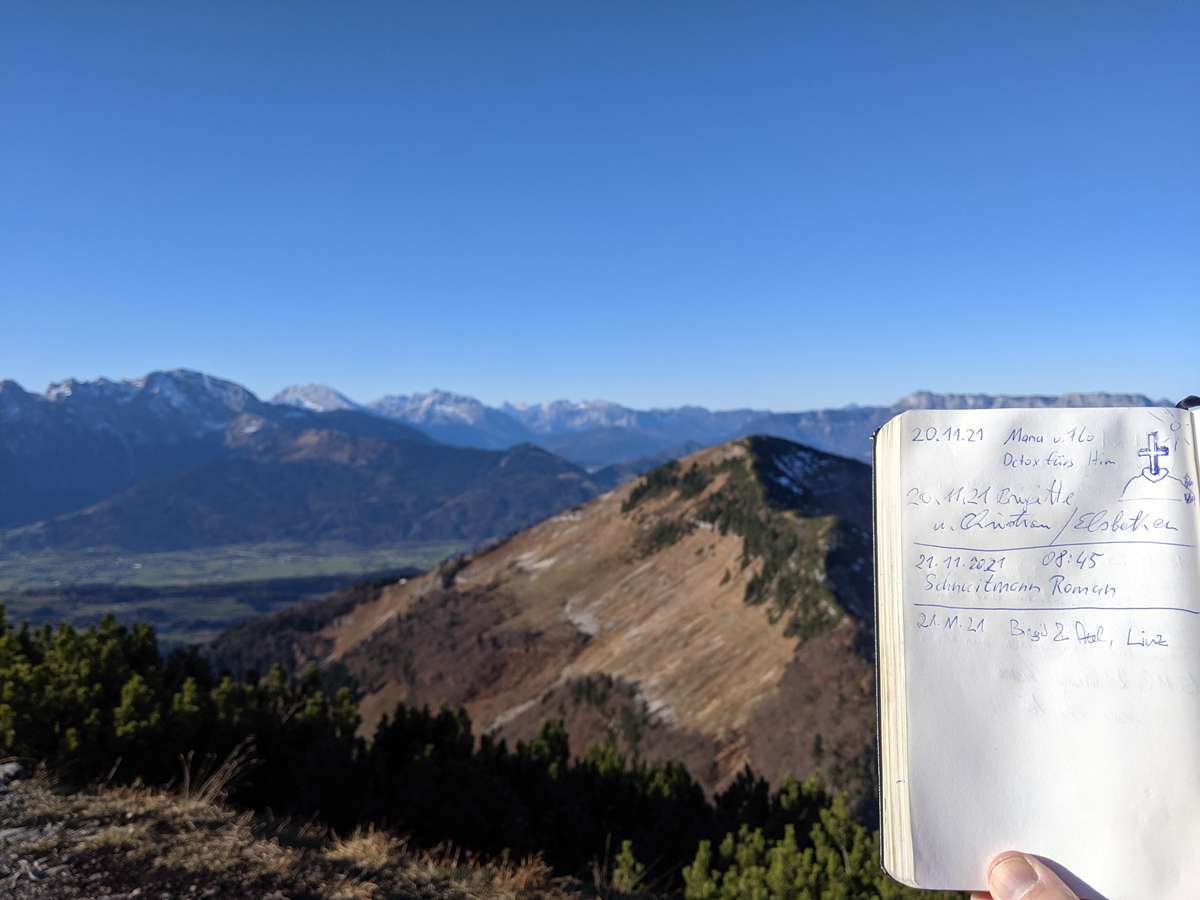 20.11.21 Manu u. Flo
Detox fürs Hirn
20.11.21 Brigitte
u. Christian / Elsbethen
21.11.2021 08:45
Schneitmann Roman
21.11.21 &, Linz